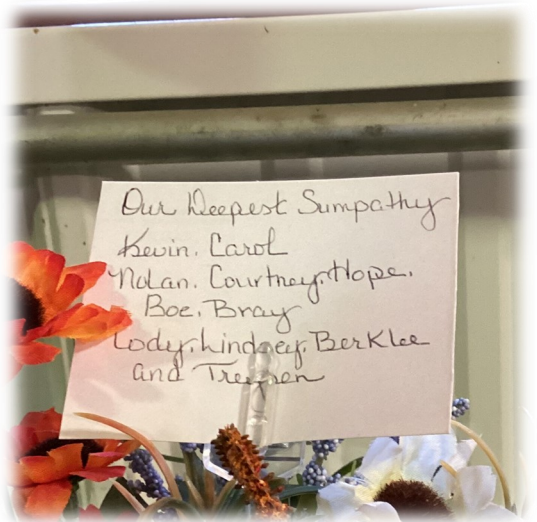 Our Deepest Sympathy
Kevin, Carol
Nolan, Courtney, Hope,
Boe, Bray
Cody, Lindsey, BerKlee
and